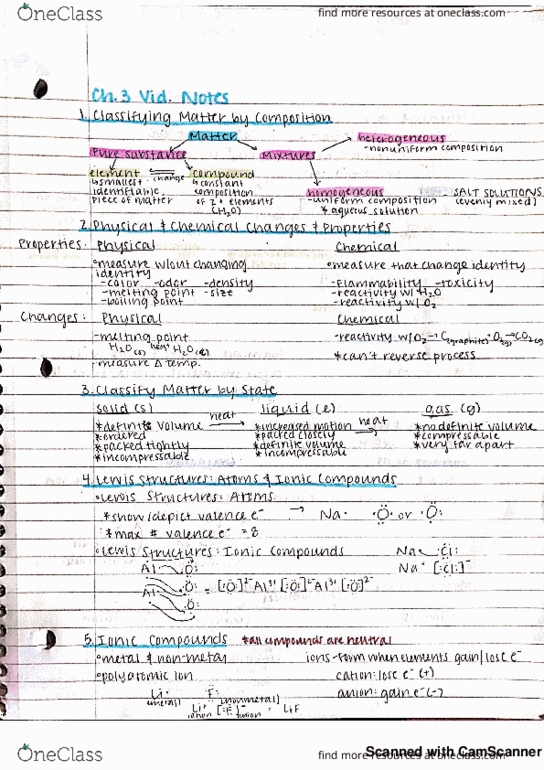 OneClass
find more resources at oneclass.com
Ch.3 Vid. Notes
1. Classifying Matter by Composition
Matter
Pure substance
Mixtures
heterogeneous
-nonuniform composition
element
change
compound
↳smallest identifiable piece of matter
↳constant composition of 2+ elements (H₂O)
homogeneous
-uniform composition
*aqueous solution
- SALT SOLUTIONS (evenly mixed)
2. Physical & Chemical Changes & Properties
Properties: Physical
Chemical
◦measure w/out changing identity
◦measure that change identity
-color -odor -density
-flammability -toxicity
-melting point -size
-reactivity w/ H₂O
-boiling point
-reactivity w/ O₂
Changes: Physical
Chemical
-melting point
-reactivity w/ O₂→ C(graphite)+O₂(g)→CO₂(g)
H₂O(s) heat→ H₂O(l)
*can't reverse process
-measure Δ temp.
3. Classify Matter by State
solid (s)
heat
liquid (l)
heat
gas (g)
*definite volume
*increased motion
*no definite volume
*ordered
*packed closely
*compressable
*packed tightly
*definite volume
*very far apart
*incompressable
*incompressable
4. Lewis Structures: Atoms & Ionic Compounds
◦Lewis Structures: Atoms
*show/depict valence e⁻ → Na· ·Ö· or :Ö:
*max # valence e⁻ = 8
◦Lewis Structures: Ionic Compounds
Na· ·Cl:
Na⁺ [:Cl:]⁻
Al Ö:
Ö: = [:Ö:]²⁻ Al³⁺ [:Ö:]²⁻ Al³⁺ [:Ö:]²⁻
Al
Ö:
5. Ionic Compounds *all compounds are neutral
◦metal & non-metal
ions-form when elements gain/lose e⁻
◦polyatomic ion
cation: lose e⁻ (+)
anion: gain e⁻ (-)
Li· (metal) F: (nonmetal)
Li⁺ cation [:F:]⁻ anion LiF
Scanned with CamScanner
OneClass
find more resources at oneclass.com